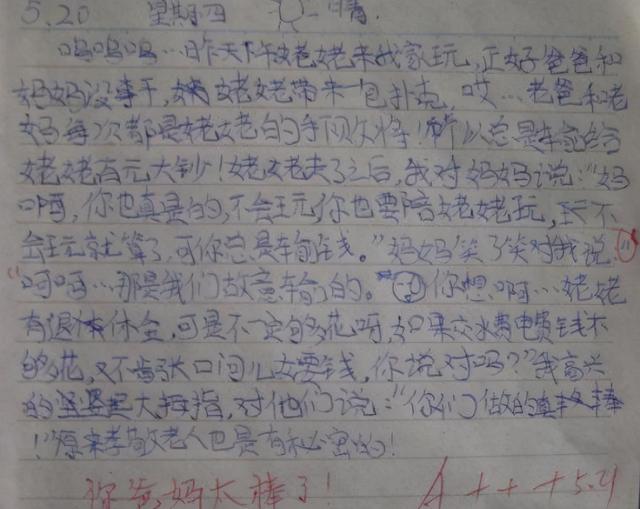 5.20 星期四 晴.
呜呜呜…昨天下午姥姥来我家玩,正好爸爸和
妈妈没事干,姥姥带来一包扑克,哎…老爸和老
妈每次都是姥姥的手下败将!所以总是输给
姥姥百元大钞!姥姥走了之后,我对妈妈说:“妈
啊,你也真是的,不会玩你也要陪姥姥玩,不
会玩就算了,可你总是输钱。”妈妈笑了笑对我说:
“呵呵…那是我们故意输的。你想啊…姥姥
有退休金,可是不一定够花呀,如果交水费电费钱不
够花,又不肯张口问儿女要钱,你说对吗?”我高兴
的竖起大拇指,对他们说:“你们做的真棒
!”原来孝敬老人也是有秘密的!
你爸妈太棒了! A+++ 5.21